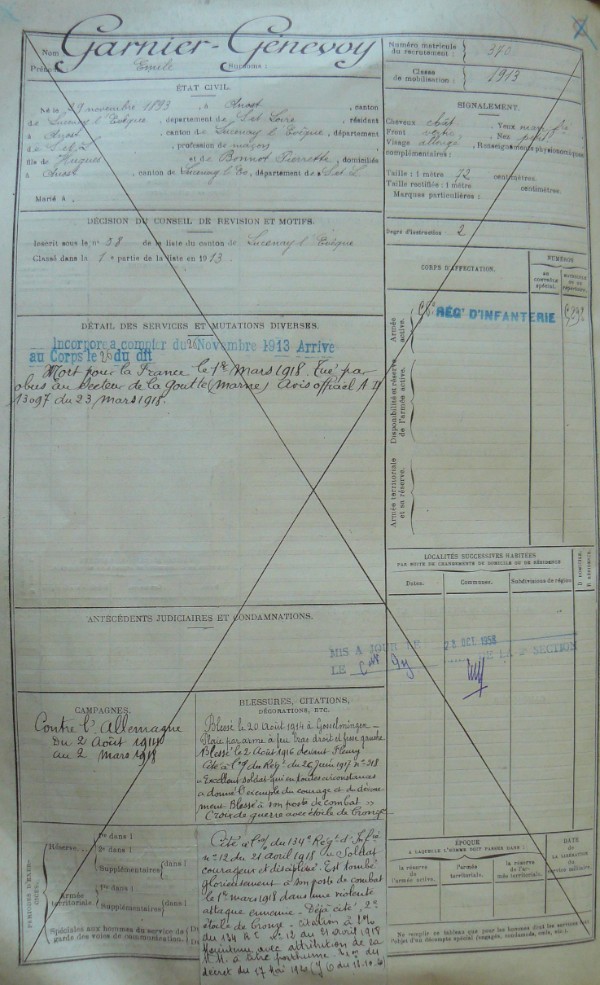 Nom Garnier-Génevoy
Prénoms Emile Surnoms :
ÉTAT CIVIL.
Né le 29 novembre 1893, à Anost, canton
de Lucenay l'Evêque, département de S. et Loire, résidant
à Anost, canton de Lucenay l'Evêque, département
de S. et L., profession de maçon,
fils de Hugues et de Bonnot Pierrette, domiciliés
à Anost, canton de Lucenay l'Ev, département de S et L
Marié à
DÉCISION DU CONSEIL DE RÉVISION ET MOTIFS.
Inscrit sous le n° 38 de la liste du canton de Lucenay l'Evêque
Classé dans la 1e partie de la liste en 1913.
DÉTAIL DES SERVICES ET MUTATIONS DIVERSES.
Incorporé à compter du 26 Novembre 1913 Arrivé
au Corps le 26 du dit
Mort pour la France le 1er Mars 1918. Tué par
obus au secteur de la goutte (marne) Avis officiel
13097 du 23 mars 1918.
ANTÉCÉDENTS JUDICIAIRES ET CONDAMNATIONS.
CAMPAGNES.
Contre l'Allemagne
Du 2 Août 1914
au 2 mars 1918
BLESSURES, CITATIONS,
DÉCORATIONS, ETC.
Blessé le 20 Août 1914 à Gosselmingen
Plaie par arme à feu bras droit et fesse gauche
Blessé le 2 Août 1916 devant Fleury
Cité à l'O/ du Rég. du 26 Juin 1917 n° 318
"Excellent soldat qui en toutes circonstances
a donné l'exemple du courage et du dévoue-
ment. Blessé à son poste de combat."
Croix de guerre avec étoile de bronze
Cité à l'O/ du 134e Rég. d'Infie
n° 12 du 21 avril 1918 "Soldat
courageux et discipliné. Est tombé
glorieusement à son poste de combat
le 1er mars 1918 dans une violente
attaque ennemie. Déjà cité. 2e
étoile de bronze. Citation à l'O/
du 134 R. n° 12 du 21 avril 1918
maintenue avec attribution de la
M.M. à titre posthume.
décret du 17 Mai 1920
PÉRIODES D'EXERCICES.
Réserve.
1re dans l
2e dans l
Supplémentaires dans l
Armée territoriale.
1re dans l
Supplémentaires dans l
Spéciales aux hommes du service de
garde des voies de communication.
Numéro matricule
du recrutement : 370
Classe
de mobilisation : 1913
SIGNALEMENT.
Cheveux chât. Yeux
Front Nez
Visage allongé, Renseignements physionomiques
complémentaires :
Taille : 1 mètre 72 centimètres.
Taille rectifiée : 1 mètre centimètres.
Marques particulières :
Degré d'instruction : 2
CORPS D'AFFECTATION.
NUMÉROS
au contrôle spécial.
matricule ou au répertoire.
Armée active.
RÉG' D'INFANTERIE
Disponibilité et réserve de l'armée active.
Armée territoriale et sa réserve.
LOCALITÉS SUCCESSIVES HABITÉES
PAR SUITE DE CHANGEMENTS DE DOMICILE OU DE RÉSIDENCE
Dates. Communes. Subdivisions de région
D. DOMICILE. R. RÉSIDENCE.
MIS A JOUR LE 28 OCT 1958
LE DE LA 2e SECTION
ÉPOQUE
A LAQUELLE L'HOMME DOIT PASSER DANS :
la réserve de l'armée active.
l'armée territoriale.
la réserve de l'armée territoriale.
DATE
DE LA LIBÉRATION DU service militaire.
Ne remplir ce tableau que pour les hommes dont les services ont
l'objet d'un décompte spécial (engagés, condamnés, omis, etc.).